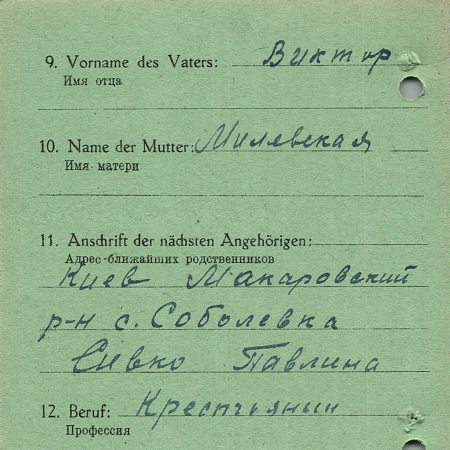 9. Vorname des Vaters: Виктор
Имя отца
10. Name der Mutter: Милевская
Имя матери
11. Anschrift der nächsten Angehörigen:
Адрес ближайших родственников
Киев Макаровский
р-н с. Соболевка
Сивко Павлина
12. Beruf: Крестьянин
Профессия